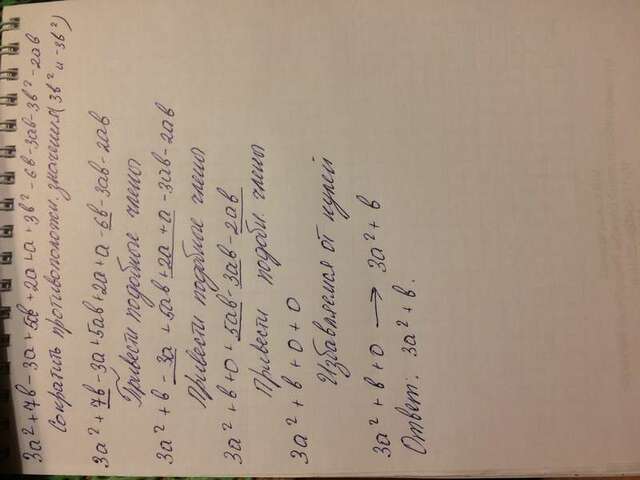 3a² + 7в - 3a + 5ав + 2a + a + 3в² - 6в - 3ав - 3в² - 2ав
Сократить противополож. значения (3в² и -3в²)
3a² + 7в - 3a + 5ав + 2a + a - 6в - 3ав - 2ав
Привести подобные члены
3a² + в - 3a + 5ав + 2a + a - 3ав - 2ав
Привести подобные члены
3a² + в + 0 + 5ав - 3ав - 2ав
Привести подобн. члены
3a² + в + 0 + 0
Избавляемся от нулей
3a² + в + 0 → 3a² + в
Ответ: 3a² + в.